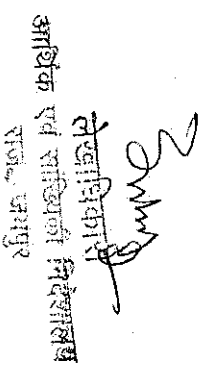 लेखाधिकारी
आर्थिक एवं सांख्यिकी निदेशालय
राज. जयपुर